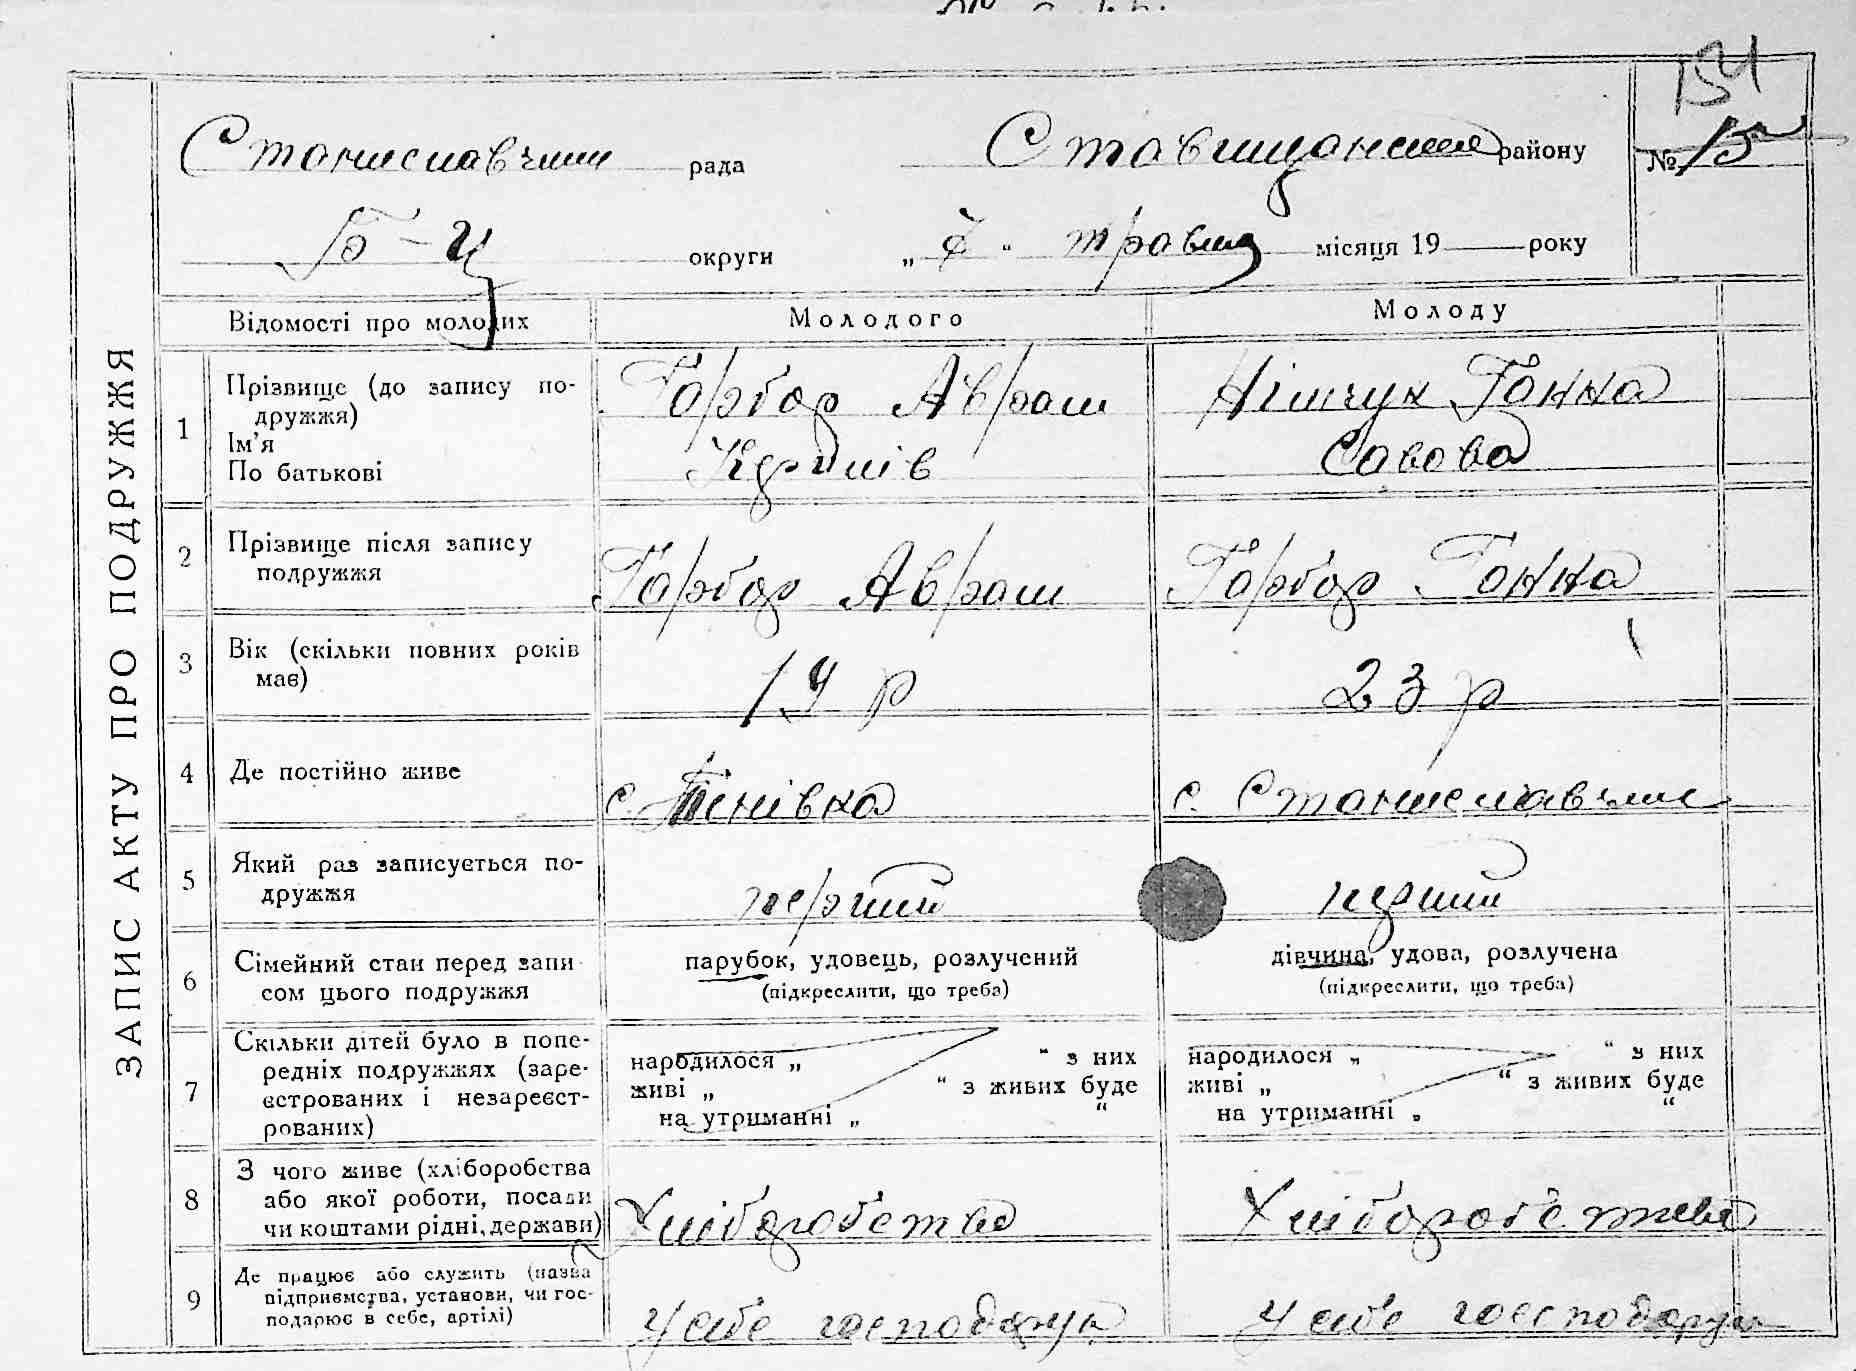 154
Станиславчик рада Ставищанського району № 15
Б-Ц округи „ 7 “ травня місяця 19 року
ЗАПИС АКТУ ПРО ПОДРУЖЖЯ
Відомості про молодих Молодого Молоду
1 Прізвище (до запису по-
дружжя)
Ім'я
По батькові
Гарбар Авраам
Німчук Ганна
Савова
2 Прізвище після запису
подружжя
Гарбар Авраам Гарбар Ганна
3 Вік (скільки повних років
має)
19 р 23 р
4 Де постійно живе с. Тинівка с. Станиславчик
5 Який раз записується по-
дружжя
перший перший
6 Сімейний стан перед запи-
сом цього подружжя
парубок, удовець, розлучений
(підкреслити, що треба)
дівчина, удова, розлучена
(підкреслити, що треба)
7 Скільки дітей було в попе-
редніх подружжях (заре-
єстрованих і незареєст-
рованих)
народилося „ “ з них
живі „ “ з живих буде
на утриманні „ “
народилося „ “ з них
живі „ “ з живих буде
на утриманні „ “
8 З чого живе (хліборобства
або якої роботи, посади
чи коштами рідні, держави)
Хліборобство Хліборобство
9 Де працює або служить (назва
підприємства, установи, чи гос-
подарює в себе, артілі)
У себе господарює У себе господарює